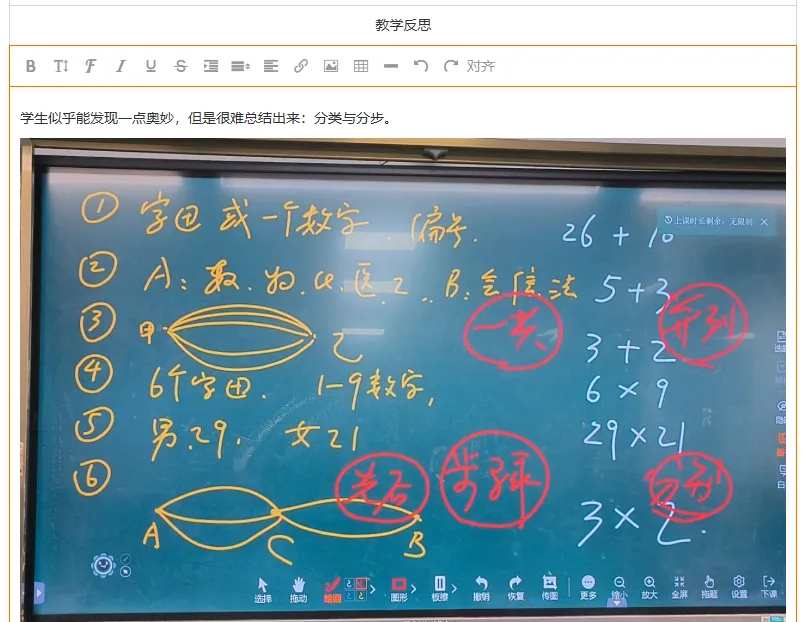 教学反思
B T F I U S 对齐
学生似乎能发现一点奥妙，但是很难总结出来：分类与分步。
上课时长剩余：无限制
① 字母或一个数字，编号. 26 + 10
② A：数. B：会 信 法 5+3
一类
③ 甲 乙 3 + 2
④ 6个字母. 1-9数字, 6 × 9
⑤ 男29, 女21 29×21
先后 步骤
⑥ A C B 3 × 2.
选择 拖动 绘画 图形 板擦 撤销 恢复 传图 更多 缩小 放大 全屏 拖题 设置 下课